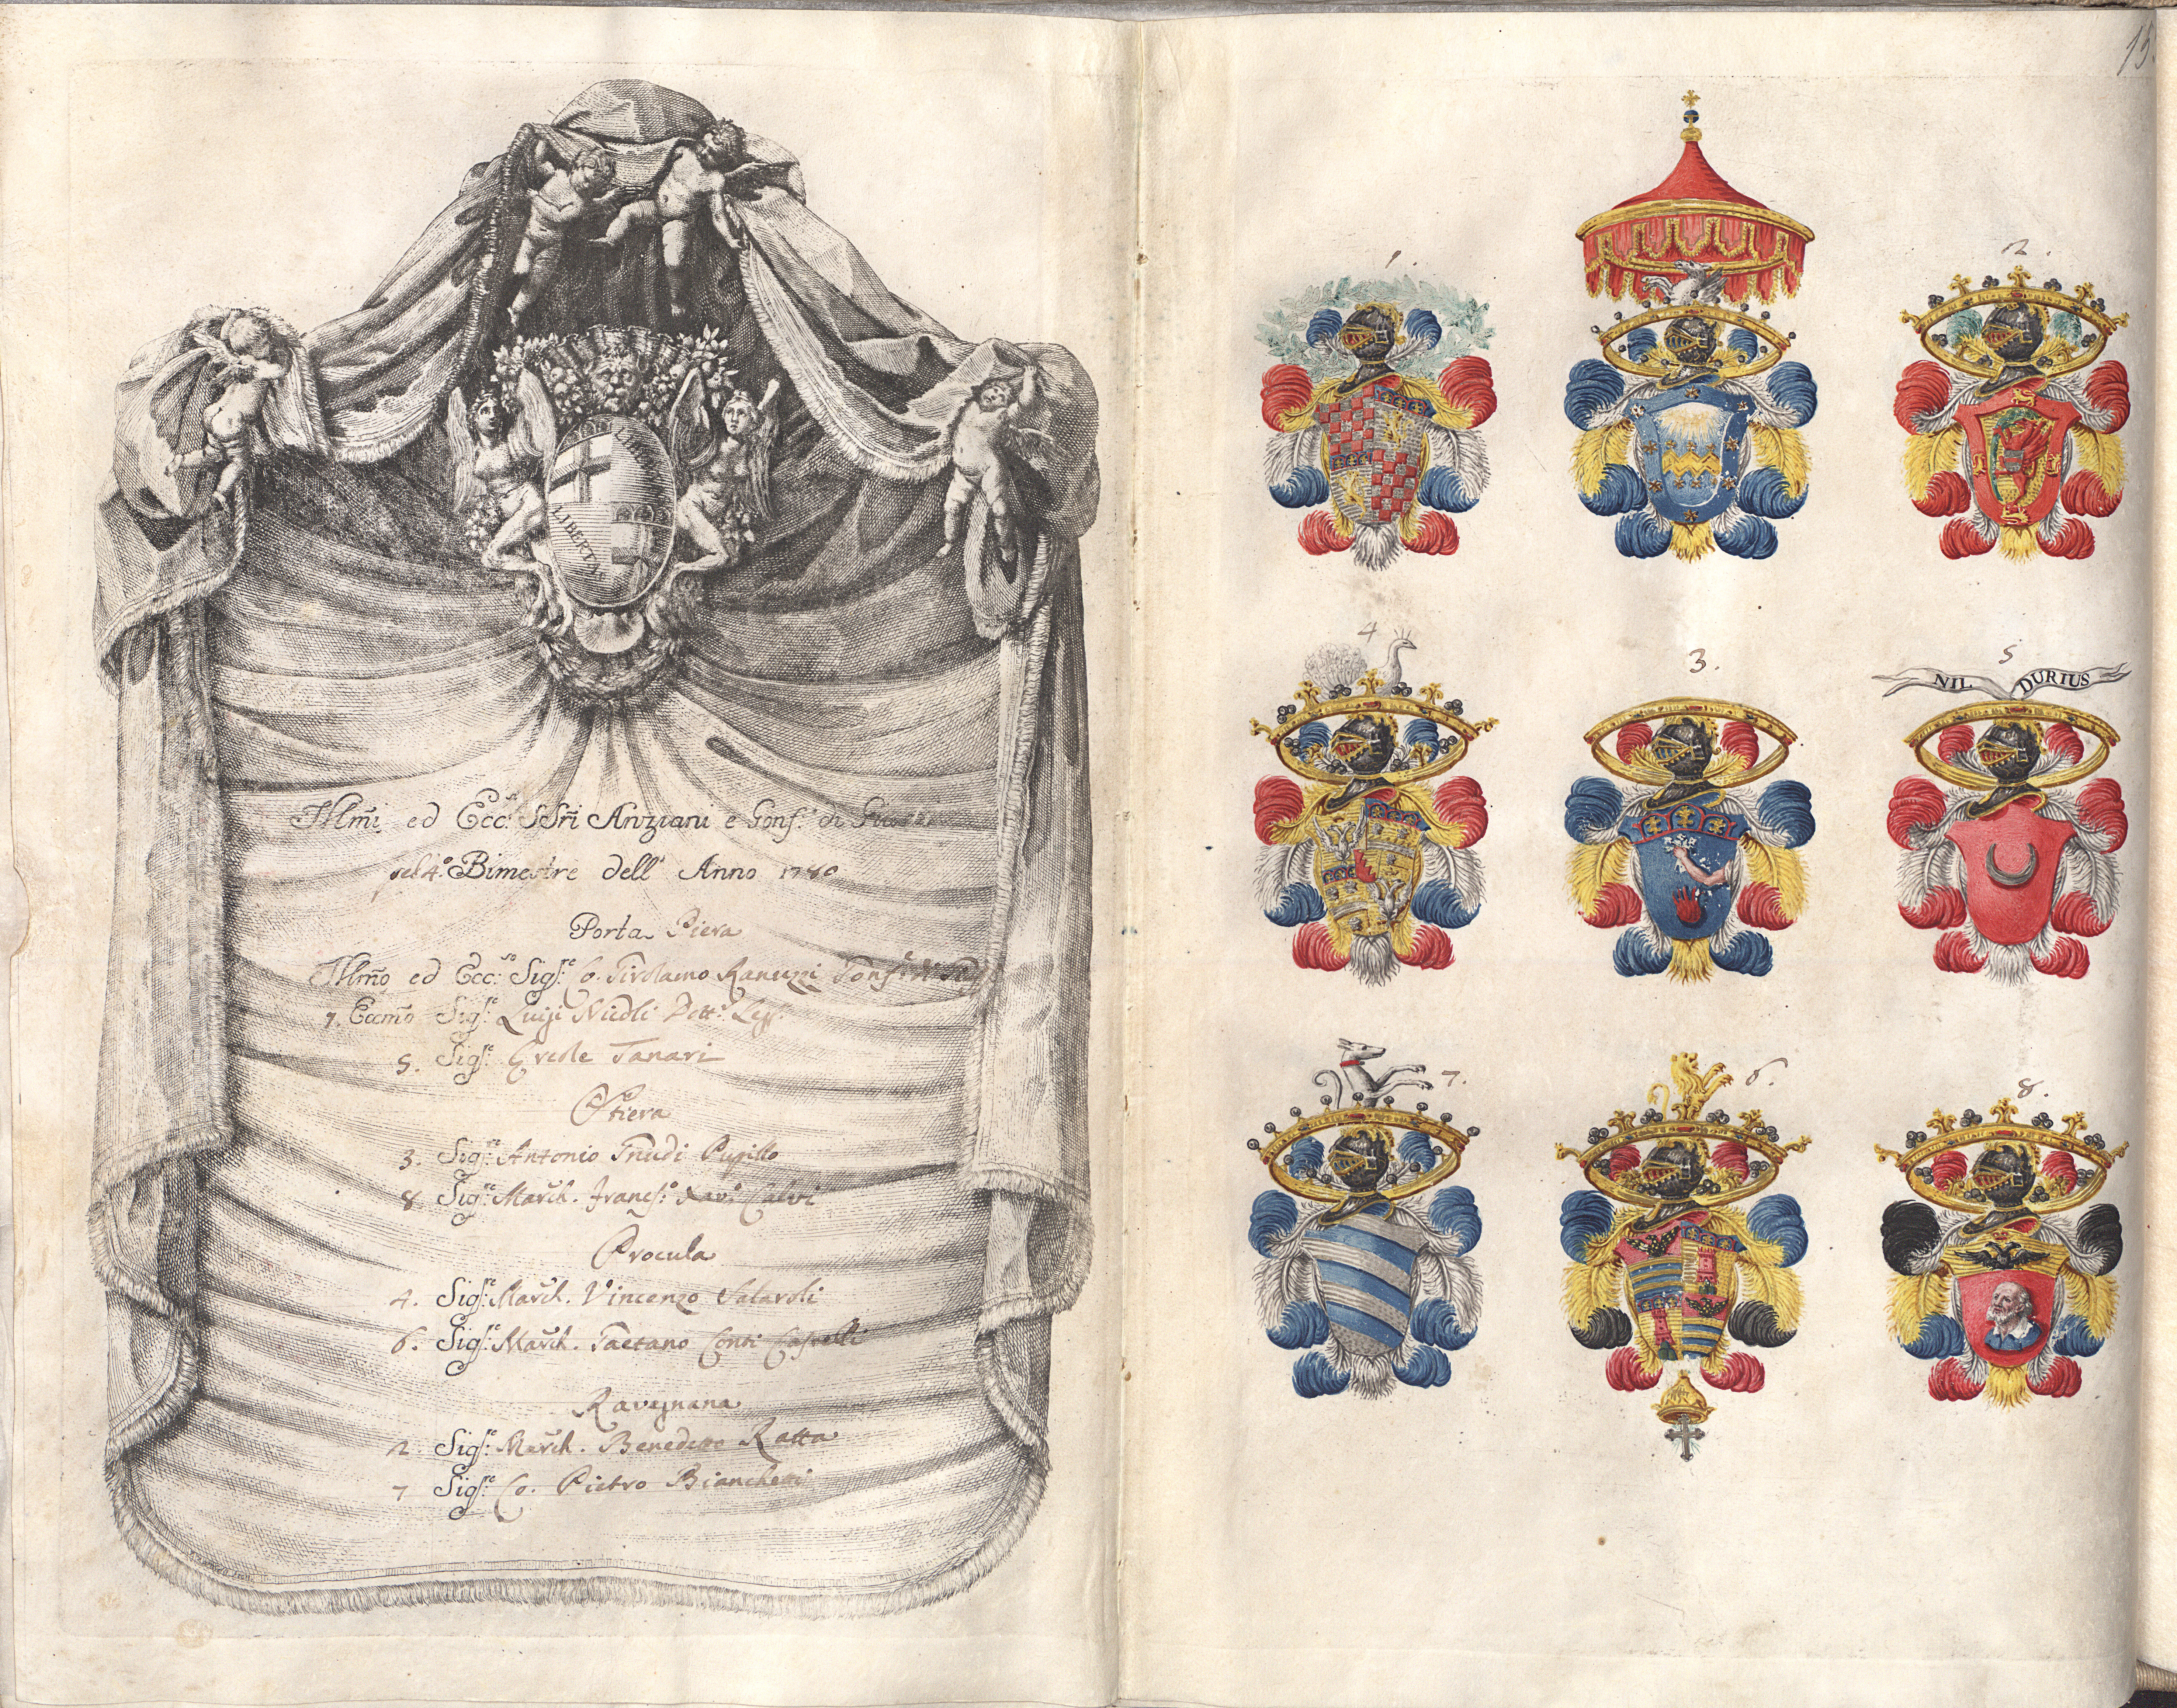 LIBERTAS
LIBERTAS
Illmi ed Ecc.si SSri Anziani e Gonf.e di
pel 4.o Bimestre dell' Anno 1780
Porta Piera
Illmo ed Ecc.so Sig.re Co. Girolamo Ranuzzi Gonf.e di
1. Eccmo Sig.re Luigi Nicoli Dott.e Leg.
5. Sig.re Ercole Tanari
Stiera
3. Sig.re Antonio Gnudi Pupillo
8 Sig.re March. Franc.o Xav.o Calvi
Procula
4. Sig.re March. Vincenzo Salaroli
6. Sig.re March. Gaetano Conti Castelli
Ravegnana
2. Sig.re March. Benedetto Ratta
7 Sig.re Co. Pietro Bianchetti
15.
1.
2.
4
3.
5
NIL DURIUS
7.
6.
8.